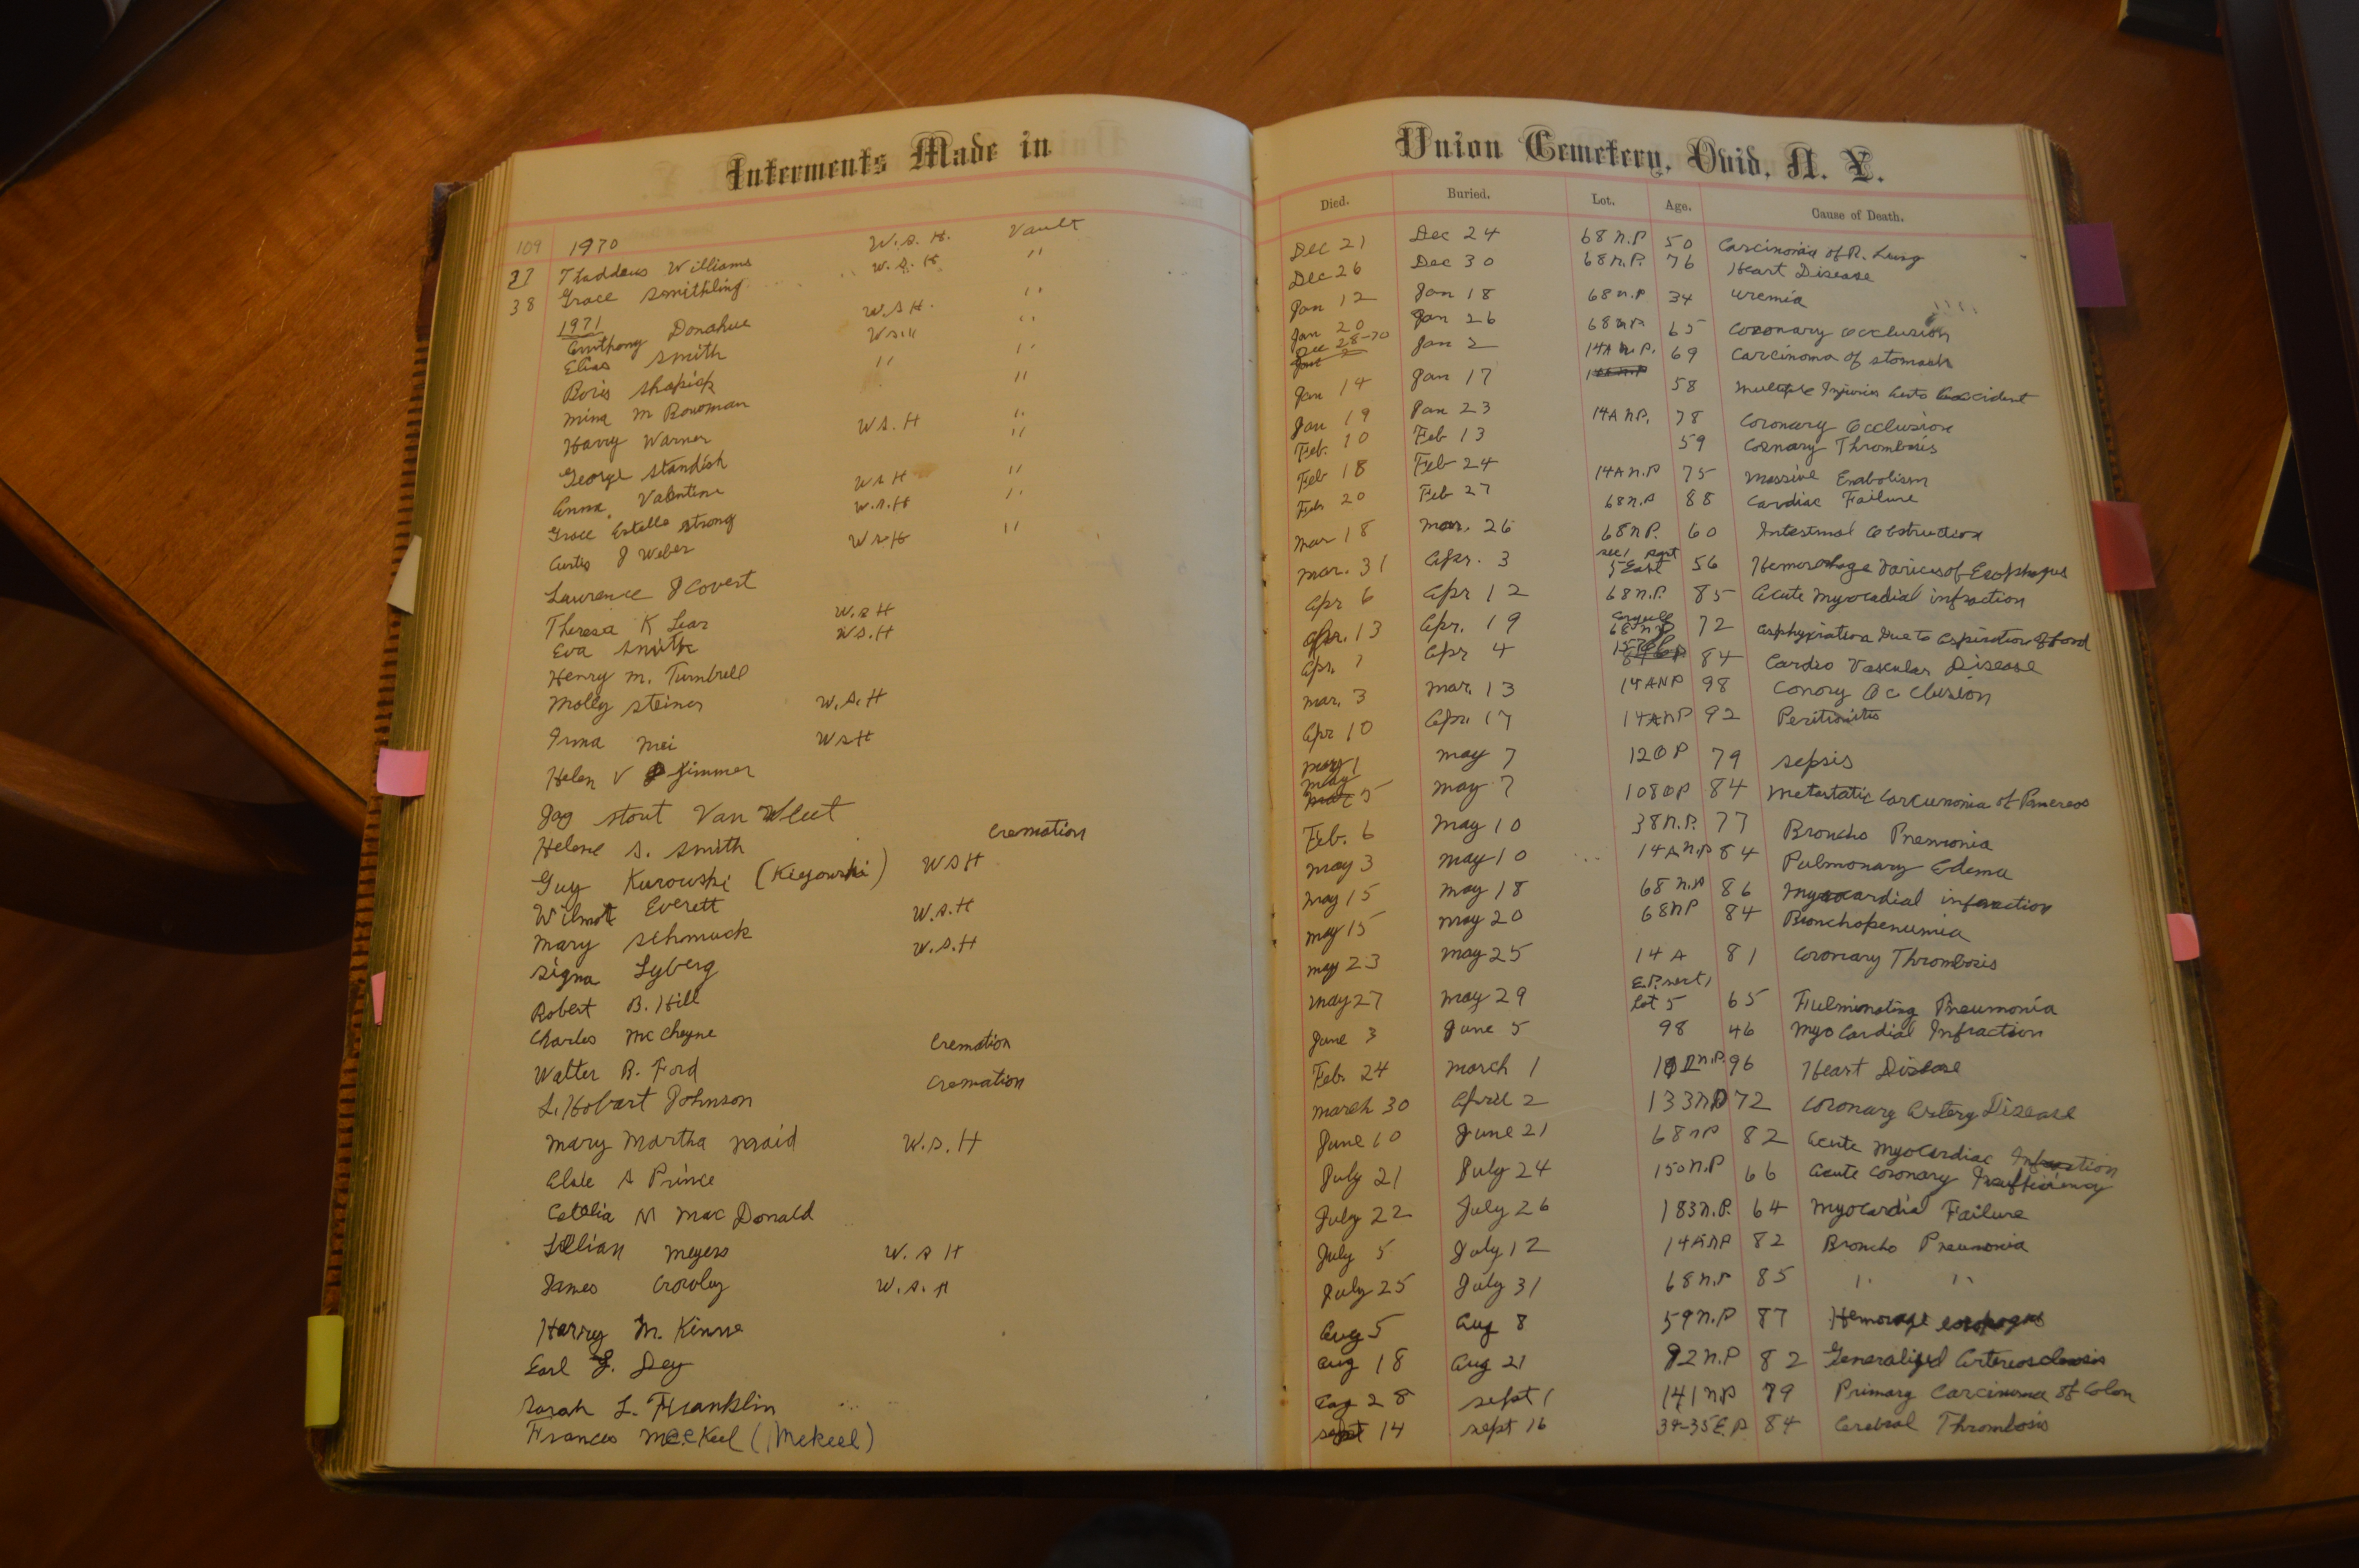 Interments Made in
109 1970 W.S.H. Vault
37 Thaddeus Williams W.S.H "
38 Grace Smithling
1971 W.S.H. "
Anthony Donahue WSH "
Elias Smith " "
Boris Shapick "
Mina M Bowman
Harry Warner W.S.H "
George Standish "
Emma Valentine WSH "
Grace Estella Strong W.S.H "
Curtis J Weber WSH "
Lawrence J Covert
Theresa K Lear W.S.H
Eva Smith WS.H
Henry M. Turnbull
Molly Steiner W.S.H
Irma Mei WSH
Helen V Zimmer
Jay Stout Van Vleet
Helene S. Smith Cremation
Guy Kurowski (Kiyowski) WSH
Wilmot Everett
Mary Schmuck W.S.H
Signa Lyberg W.S.H
Robert B. Hill
Charles McCheyne
Walter B. Ford Cremation
L. Hobart Johnson Cremation
Mary Martha Maid W.S.H
Elsie A Prince
M Mac Donald
Lillian Meyers W.S H
James Crowley W.S.H
Harry M. Kinne
Earl Dey
Sarah L. Franklin
Frances McKeel (Mekeel)
Union Cemetery, Ovid, N. Y.
Died. Buried. Lot. Age. Cause of Death.
Dec 21 Dec 24 68 N.P 50 Carcinoma of R. Lung
Dec 26 Dec 30 68 N.P. 76 Heart Disease
Jan 12 Jan 18 68 N.P 34 Uremia
Jan 20 Jan 26 68 NP 65 Coronary Occlusion
Dec 28-70 Jan 2 14A N.P. 69 Carcinoma of stomach
Jan 14 Jan 17 58 Multiple Injuries Auto Accident
Jan 19 Jan 23 14A N.P. 78 Coronary Occlusion
Feb. 10 Feb 13 59 Cornary Thrombosis
Feb 18 Feb 24 14A N.P 75 Massive Embolism
Feb 20 Feb 27 68 N.P 88 Cardiac Failure
Mar 18 Mar. 26 68 NP. 60 Intestinal Obstruction
Mar. 31 Apr. 3 5 East 56 Hemorrhage Varices of Esophagus
Apr 6 Apr 12 68 N.P. 85 Acute Myocadial infraction
Apr. 13 Apr. 19 68 NP 72 Asphyxiation Due to Aspiration of food
Apr. 1 Apr 4 84 Cardio Vascular Disease
Mar. 3 Mar. 13 14ANP 98 Conory Occlusion
Apr 10 Apr. 17 14ANP 92 Peritonitis
May 1 May 7 120P 79 Sepsis
May 5 May 7 108OP 84 Metastatic Carcunonia of Pancreas
Feb. 6 May 10 38 N.P. 77 Broncho Pnemonia
May 3 May 10 14A N.P 84 Pulmonary Edema
May 15 May 18 68 N.P 86 Myocardial infraction
May 15 May 20 68NP 84 Bronchopenumia
May 23 May 25 14 A 81 Coronary Thrombosis
May 27 May 29 Lot 5 65 Fulminating Pneumonia
June 3 June 5 98 46 Myo Cardial Infraction
Feb. 24 March 1 96 Heart Disease
March 30 April 2 133NP 72 Coronary Artery Disease
June 10 June 21 68 NP 82 Acute Myocardiac Infraction
July 21 July 24 150 N.P 66 Acute Coronary Insufficiency
July 22 July 26 183 N.P. 64 Myocardial Failure
July 5 July 12 14ANP 82 Broncho Pneumonia
July 25 July 31 68 N.P 85 " "
Aug 5 Aug 8 59 N.P 87 Hemorage esophagus
Aug 18 Aug 21 92 N.P 82 Generalized Arteriosclerosis
Aug 28 Sept 1 141 NP 79 Primary Carcinoma of Colon
Sept 14 Sept 16 34-35 E.P. 84 Cerebral Thrombosis